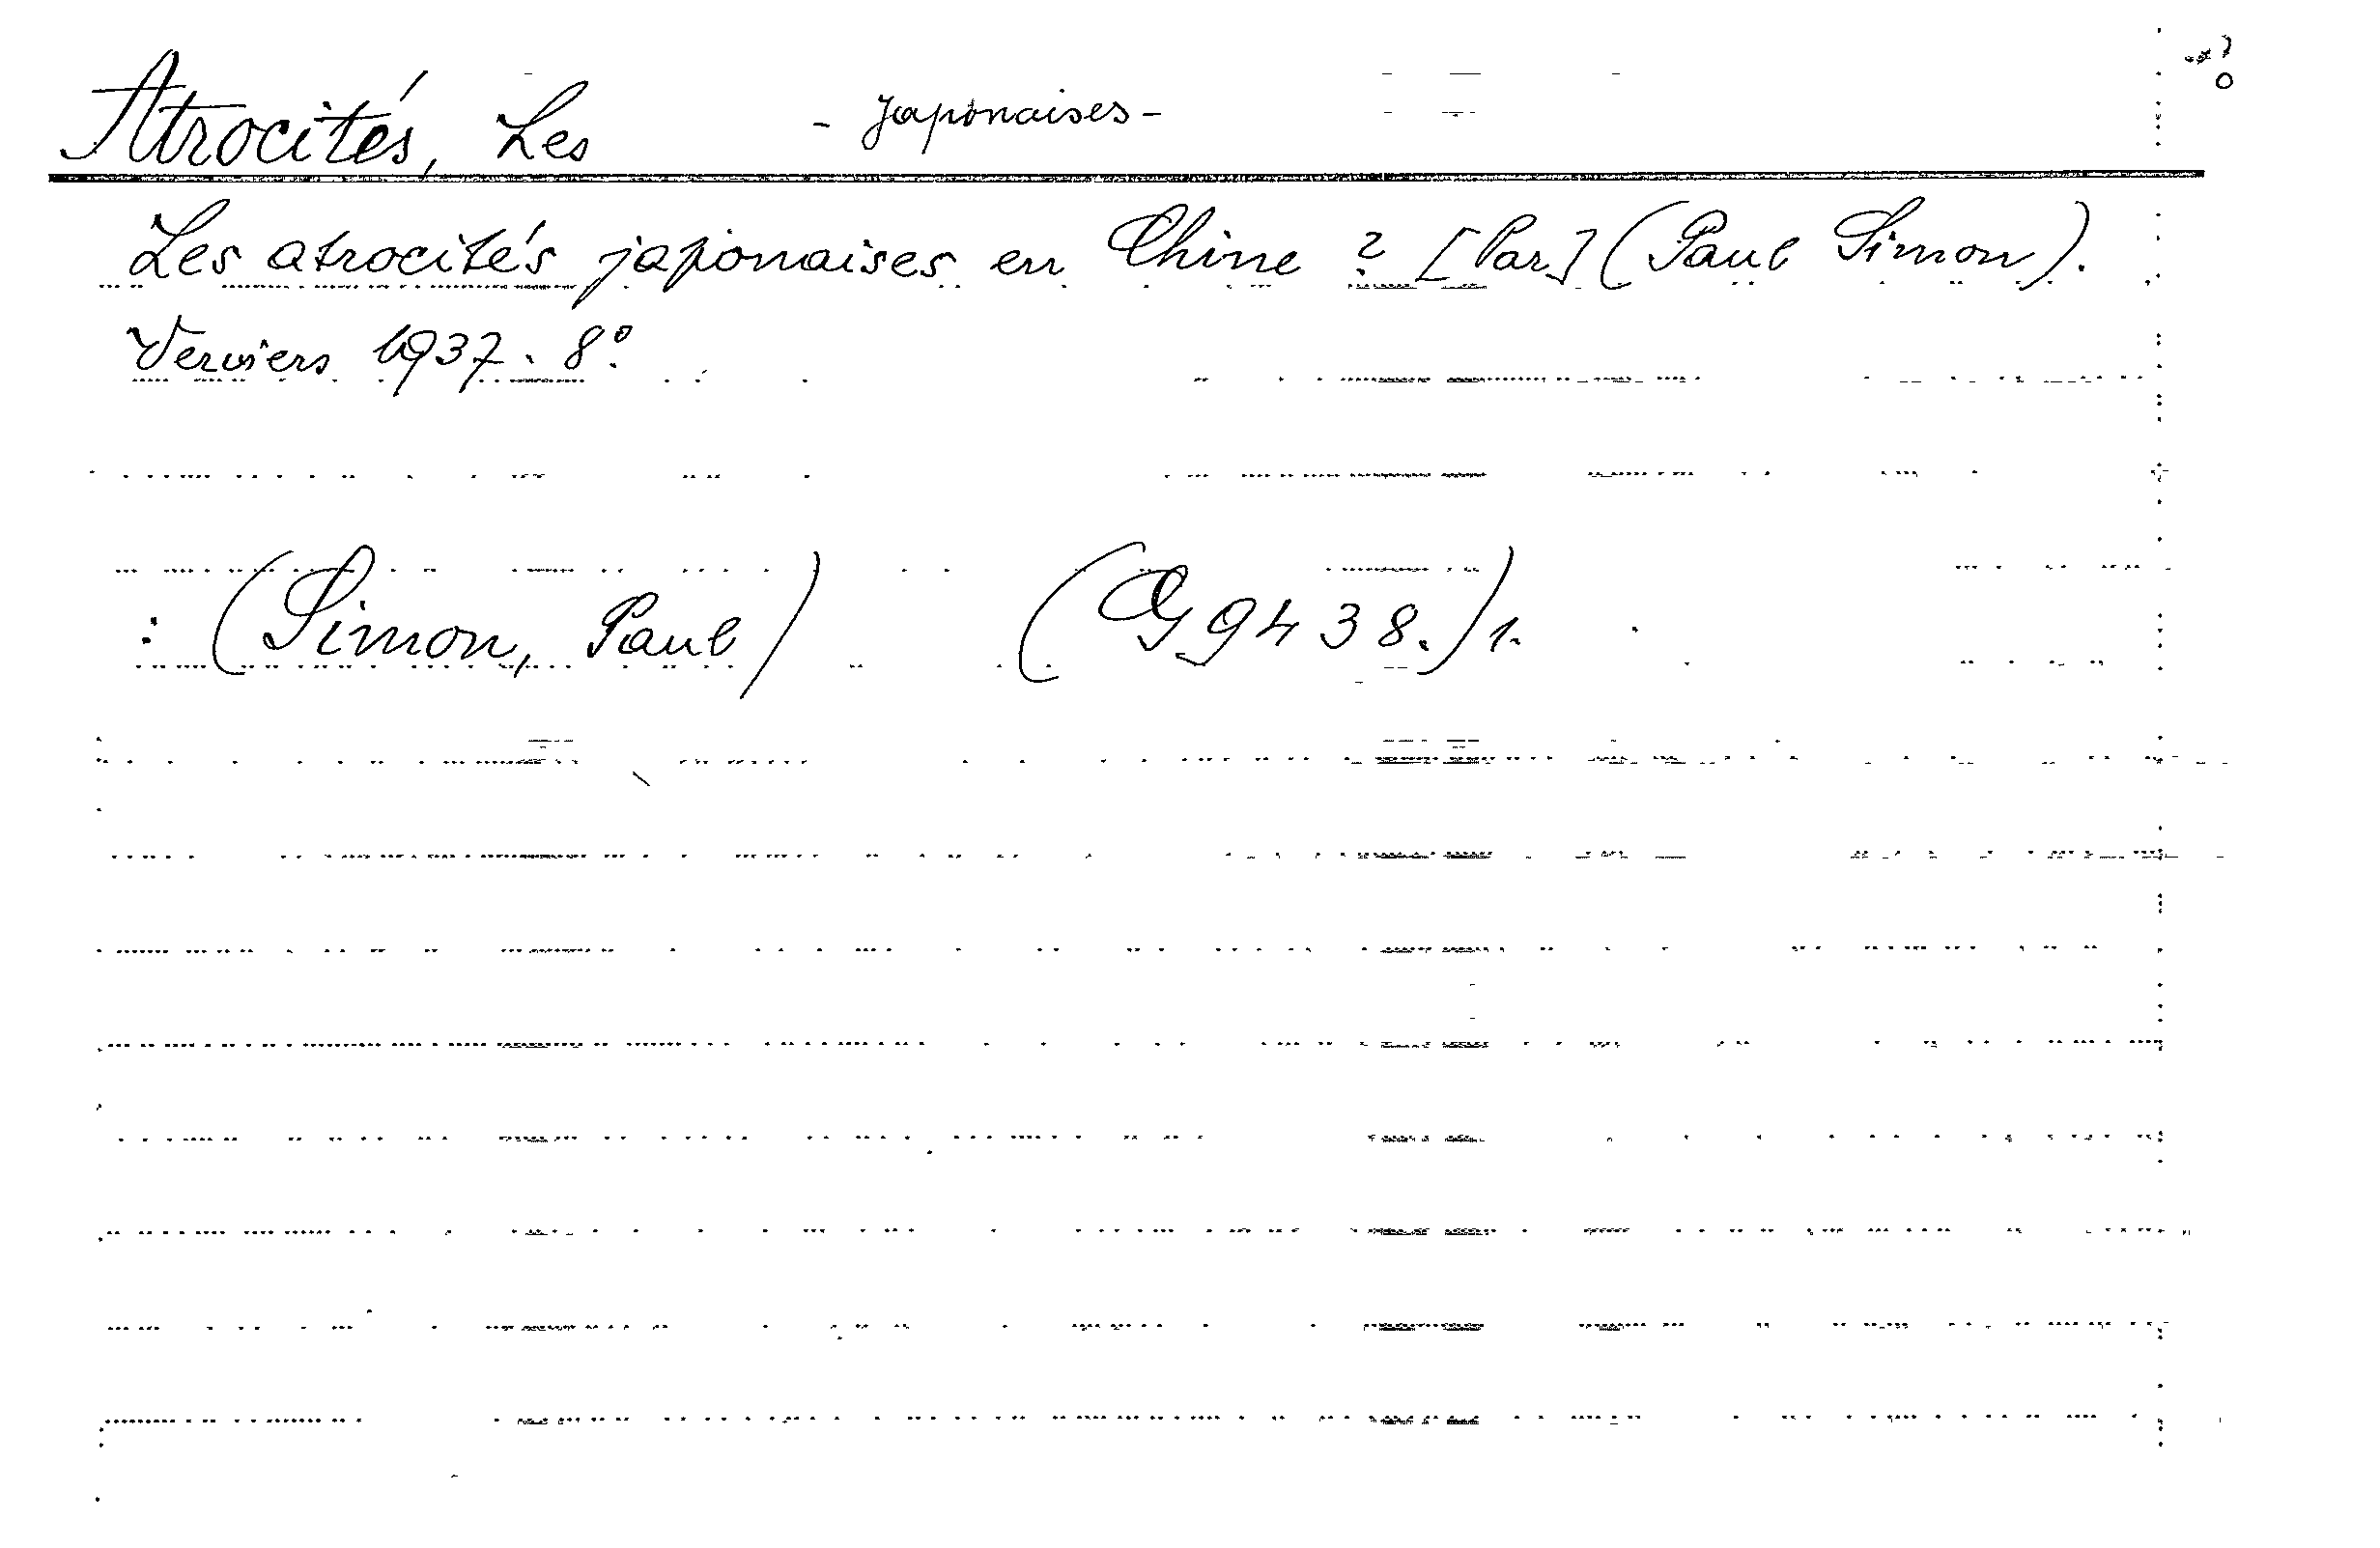 Atrocités, Les - japonaises -
Les atrocités japonaises en Chine ? [Par] (Paul Simon).
Verviers 1937. 8°.
: (Simon, Paul) (G 9438.) 1.